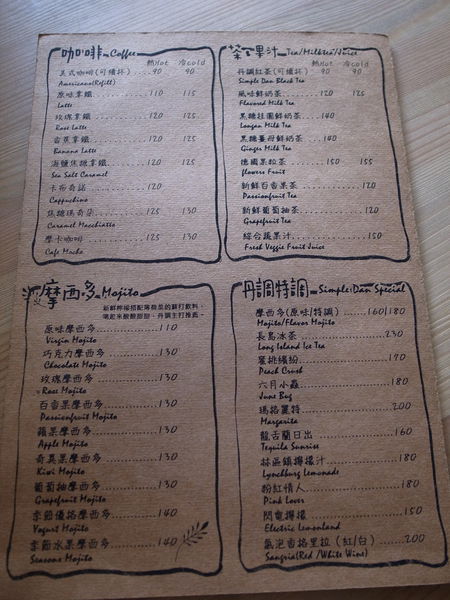 咖啡 Coffee
熱Hot 冷Cold
美式咖啡(可續杯)...90 90
Americano(Refill)
原味拿鐵...110 115
Latte
玫瑰拿鐵...120 125
Rose Latte
香蕉拿鐵...120 125
Banana Latte
海鹽焦糖拿鐵...120 125
Sea Salt Caramel
卡布奇諾...120
Cappuchino
焦糖瑪奇朵...125 130
Caramel Macchiatto
摩卡咖啡...125 130
Cafe Mocha
茶果汁 Tea/Milktea/Juice
熱Hot 冷Cold
丹調紅茶(可續杯)...90 90
Simple Dan Black Tea
風味鮮奶茶...120
Flavored Milk Tea
黑糖桂圓鮮奶茶...140
Longan Milk Tea
黑糖薑母鮮奶茶...140
Ginger Milk Tea
德國果粒茶...150 155
flowers Fruit
新鮮百香果茶...120
Passionfruit Tea
新鮮葡萄柚茶...120
Grapefruit Tea
綜合蔬果汁...150
Fresh Veggie Fruit Juice
摩西多 Mojito
新鮮檸檬搭配薄荷葉的蘇打飲料,
喝起來酸酸甜甜、丹調主打推薦。
原味摩西多...110
Virgin Mojito
巧克力摩西多...130
Chocolate Mojito
玫瑰摩西多...130
Rose Mojito
百香果摩西多...130
Passionfruit Mojito
蘋果摩西多...130
Apple Mojito
奇異果摩西多...130
Kiwi Mojito
葡萄柚摩西多...130
Grapefruit Mojito
季節優格摩西多...140
Yogurt Mojito
季節水果摩西多...140
Seasons Mojito
丹調特調 Simple Dan Special
摩西多(原味/特調)...160/180
Mojito/Flavor Mojito
長島冰茶...230
Long Island Ice Tea
蜜桃繽紛...190
Peach Crush
六月小蟲...180
June Bug
瑪格麗特...200
Margarita
龍舌蘭日出...160
Tequila Sunrise
林區鎮檸檬汁...180
Lynchburg Lemonade
粉紅情人...180
Pink Lover
閃電檸檬...150
Electric Lemonland
氣泡香格里拉(紅/白)...200
Sangria(Red /White Wine)